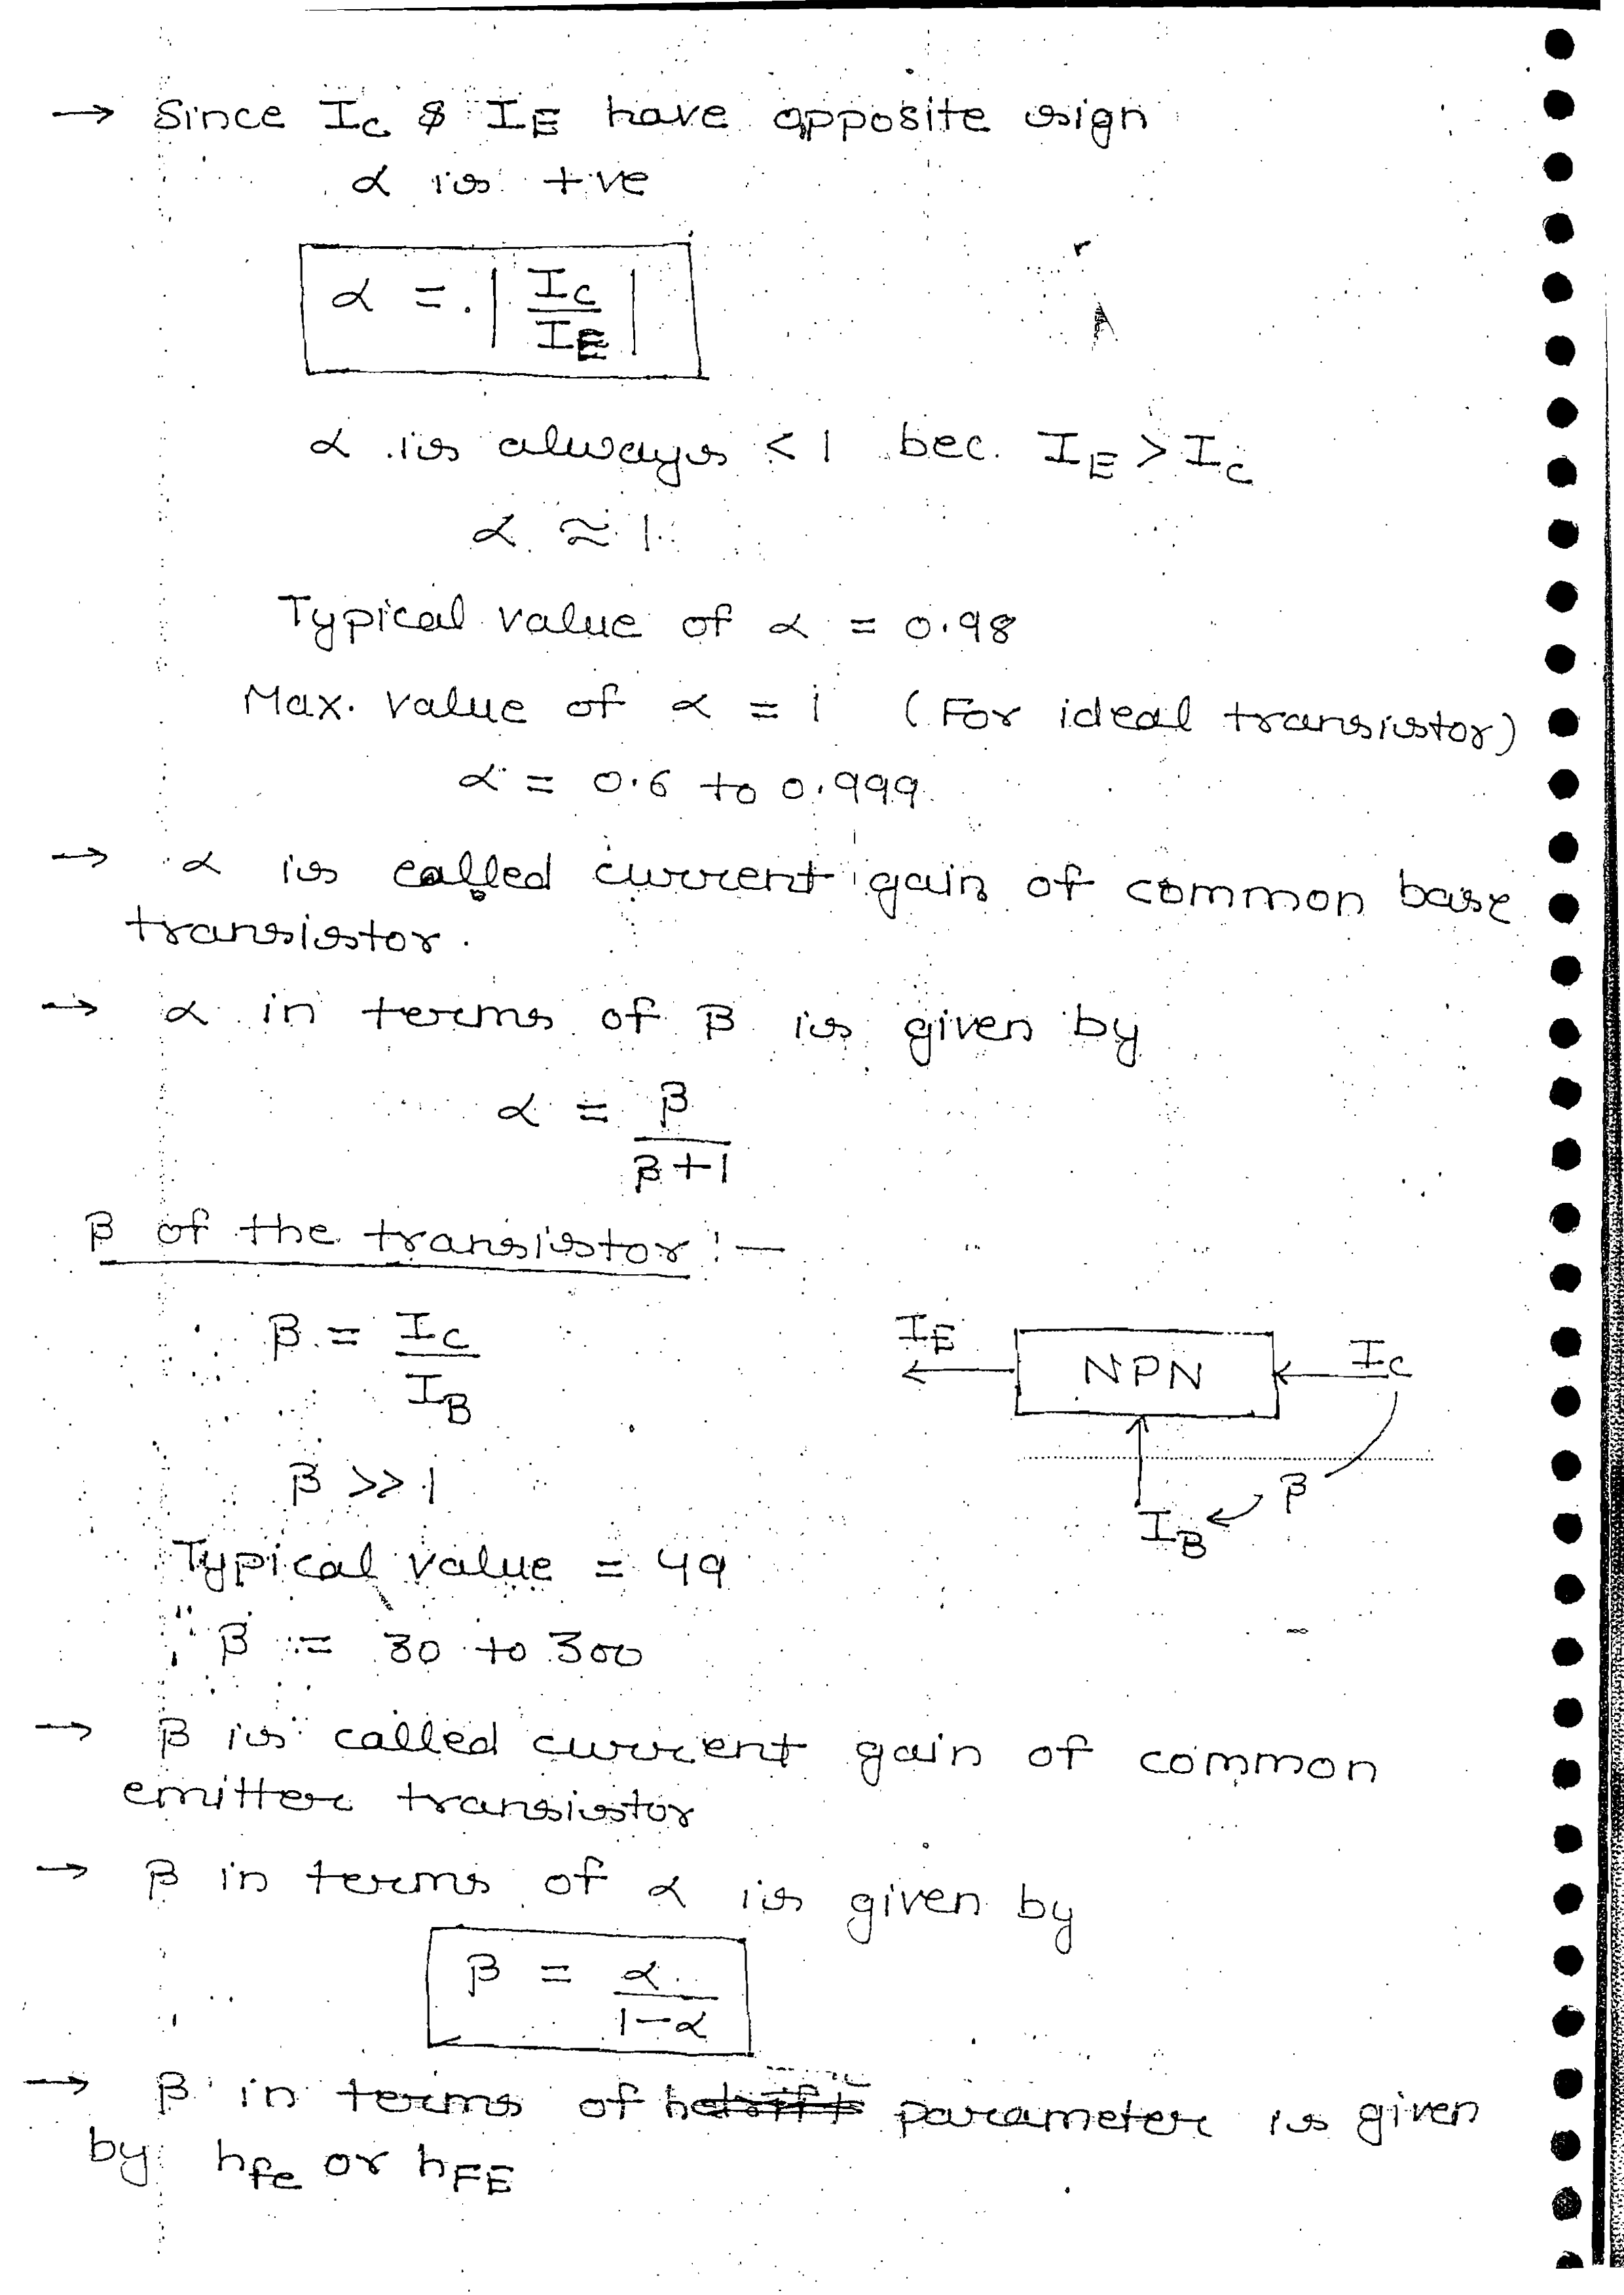 → Since I_C & I_E have opposite sign
α is +ve
α = |I_C / I_E|
α is always < 1 bec. I_E > I_C
α ≈ 1
Typical value of α = 0.98
Max. value of α = 1 (For ideal transistor)
α = 0.6 to 0.999
→ α is called current gain of common base
transistor.
→ α in terms of β is given by
α = β / (β+1)
β of the transistor :-
β = I_C / I_B
I_E NPN I_C
β >> 1
β
I_B
Typical value = 49
β = 30 to 300
→ β is called current gain of common
emitter transistor
→ β in terms of α is given by
β = α / (1-α)
→ β in terms of h parameter is given
by h_fe or h_FE